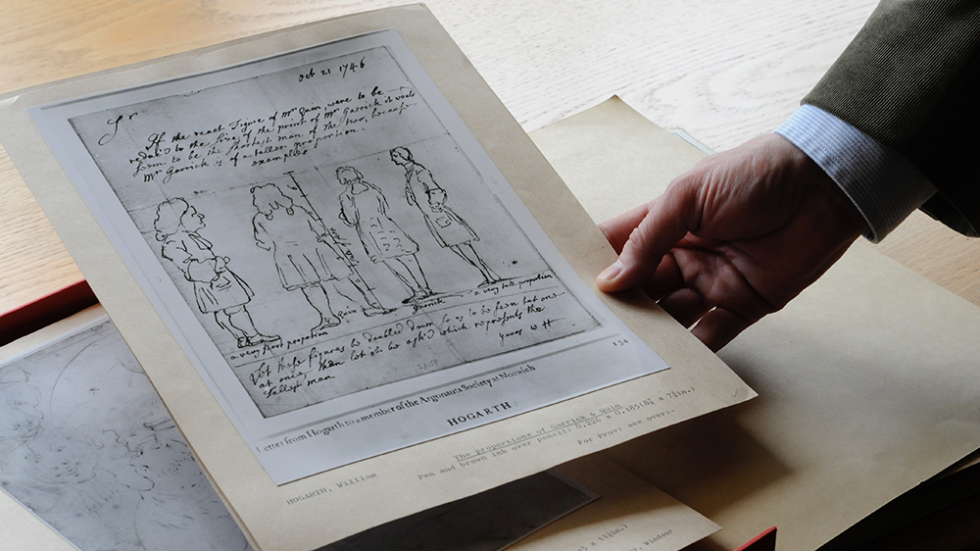 Oct 21 1746
Sr
If the exact Figure of Mr Quin, were to be
reduc'd to the size of the print of Mr Garrick it would
seem to be the shortest man of the two, because
Mr Garrick is of a taller proportion.
examples
a very short proportion
Quin
Garrick
a very tall proportion
Let these figures be doubled down so as to be seen but one
at once, then let it be ask'd which represents the
tallest man.
yours W H
Letter from Hogarth to a member of the Argonauts Society at Norwich
134
HOGARTH
HOGARTH, William
The proporsions of Garrick & Quin
Pen and brown ink over pencil:
For Prov: see over:
x 11in.)
Windsor